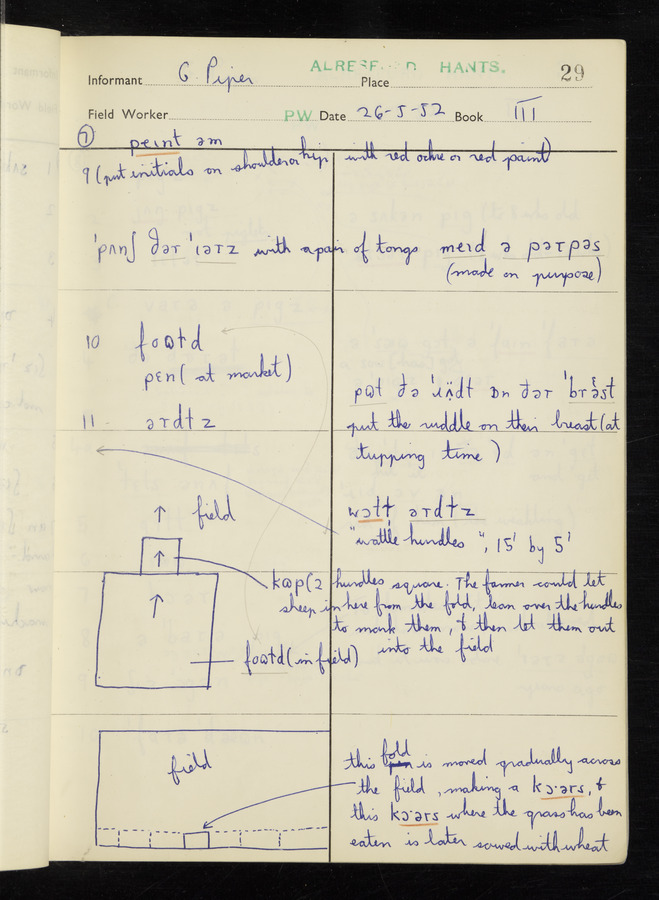 ALRESF D HANTS.
Informant G. Piper Place 29
Field Worker PW Date 26-5-52 Book III
⑦ peɪnt əm
9 (put initials on shoulder or hip with red ochre or red paint)
ˈpʌnʃ ðər ˈɪərz with a pair of tongs meɪd ə pərpəs
(made on purpose)
10 foʊɫd
pɛn (at market)
11 ərdɫz
put the ruddle on their breast (at
tupping time)
ərdɫz
"wattle hurdles", 15' by 5'
↑ field
↑
↑
(2 hurdles square. The farmer could let
sheep in here from the fold, lean over the hurdles
to mark them, & then let them out
into the field
(in field)
field
this fold is moved gradually across
the field, making a kɔ·ərs, &
this kɔ·ərs where the grass has been
eaten is later sowed with wheat